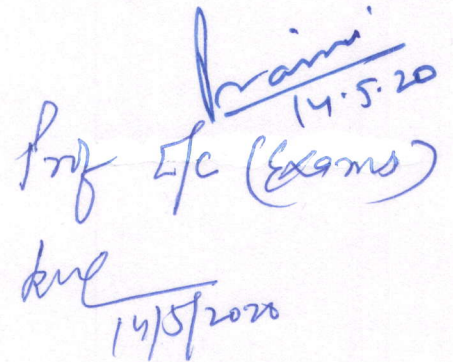 14.5.20
Prof I/C (Exams)
14/5/2020